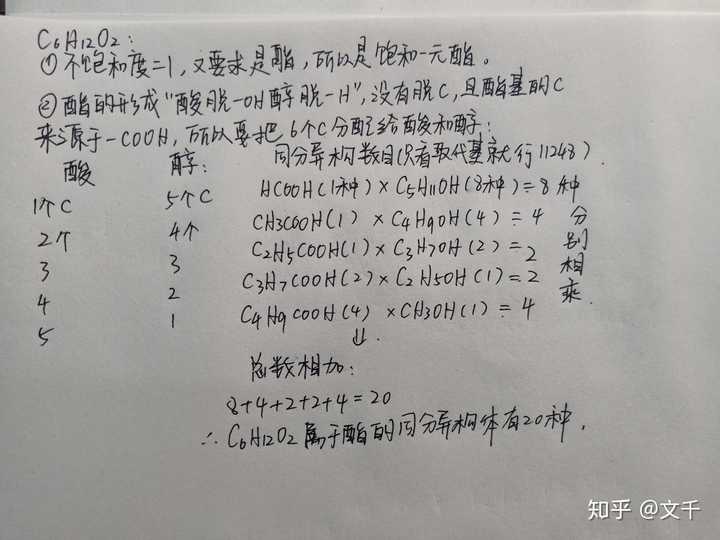 C6H12O2:
①不饱和度=1,又要求是酯,所以是饱和一元酯。
②酯的形成“酸脱-OH醇脱-H”,没有脱C,且酯基的C
来源于-COOH,所以要把6个C分配给酸和醇:
同分异构数目(只看取代基就行11248)
酸 醇:
1个C 5个C HCOOH(1种)×C5H11OH(8种)=8种
2个 4个 CH3COOH(1)×C4H9OH(4)=4
3 3 C2H5COOH(1)×C3H7OH(2)=2
4 2 C3H7COOH(2)×C2H5OH(1)=2
5 1 C4H9COOH(4)×CH3OH(1)=4
分别相乘.
↓.
总数相加:
8+4+2+2+4=20
∴C6H12O2属于酯的同分异构体有20种.
知乎 @文千